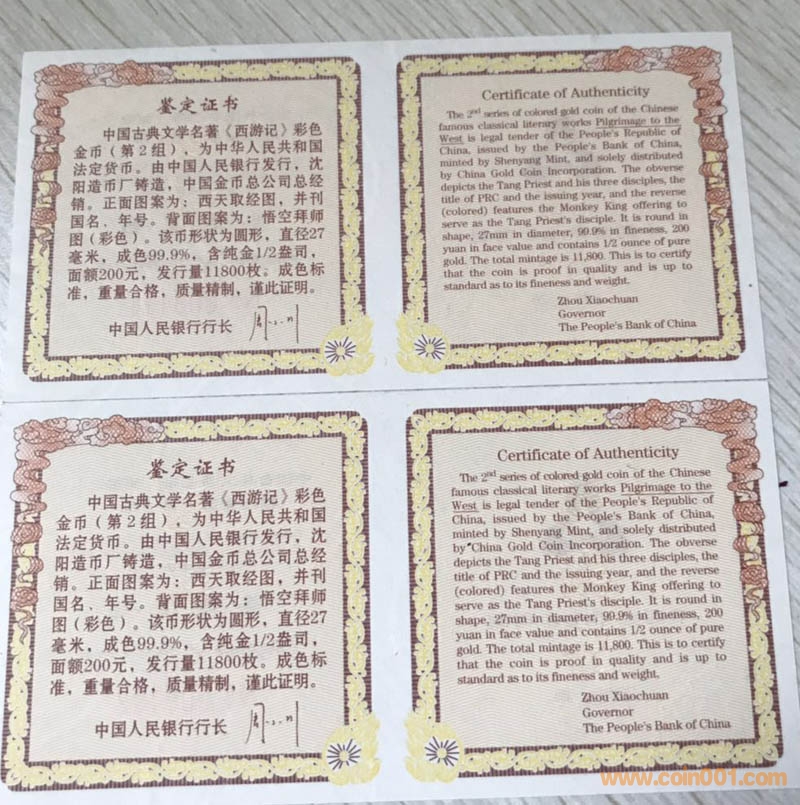 鉴定证书
中国古典文学名著《西游记》彩色
金币（第2组），为中华人民共和国
法定货币。由中国人民银行发行，沈
阳造币厂铸造，中国金币总公司总经
销。正面图案为：西天取经图，并刊
国名、年号。背面图案为：悟空拜师
图（彩色）。该币形状为圆形，直径27
毫米，成色99.9%，含纯金1/2盎司，
面额200元，发行量11800枚。成色标
准，重量合格，质量精制，谨此证明。
中国人民银行行长
Certificate of Authenticity
The 2nd series of colored gold coin of the Chinese
famous classical literary works Pilgrimage to the
West is legal tender of the People's Republic of
China, issued by the People's Bank of China,
minted by Shenyang Mint, and solely distributed
by China Gold Coin Incorporation. The obverse
depicts the Tang Priest and his three disciples, the
title of PRC and the issuing year, and the reverse
(colored) features the Monkey King offering to
serve as the Tang Priest's disciple. It is round in
shape, 27mm in diameter, 99.9% in fineness, 200
yuan in face value and contains 1/2 ounce of pure
gold. The total mintage is 11,800. This is to certify
that the coin is proof in quality and is up to
standard as to its fineness and weight.
Zhou Xiaochuan
Governor
The People's Bank of China
鉴定证书
中国古典文学名著《西游记》彩色
金币（第2组），为中华人民共和国
法定货币。由中国人民银行发行，沈
阳造币厂铸造，中国金币总公司总经
销。正面图案为：西天取经图，并刊
国名、年号。背面图案为：悟空拜师
图（彩色）。该币形状为圆形，直径27
毫米，成色99.9%，含纯金1/2盎司，
面额200元，发行量11800枚。成色标
准，重量合格，质量精制，谨此证明。
中国人民银行行长
Certificate of Authenticity
The 2nd series of colored gold coin of the Chinese
famous classical literary works Pilgrimage to the
West is legal tender of the People's Republic of
China, issued by the People's Bank of China,
minted by Shenyang Mint, and solely distributed
by China Gold Coin Incorporation. The obverse
depicts the Tang Priest and his three disciples, the
title of PRC and the issuing year, and the reverse
(colored) features the Monkey King offering to
serve as the Tang Priest's disciple. It is round in
shape, 27mm in diameter, 99.9% in fineness, 200
yuan in face value and contains 1/2 ounce of pure
gold. The total mintage is 11,800. This is to certify
that the coin is proof in quality and is up to
standard as to its fineness and weight.
Zhou Xiaochuan
Governor
The People's Bank of China
www.coin001.com